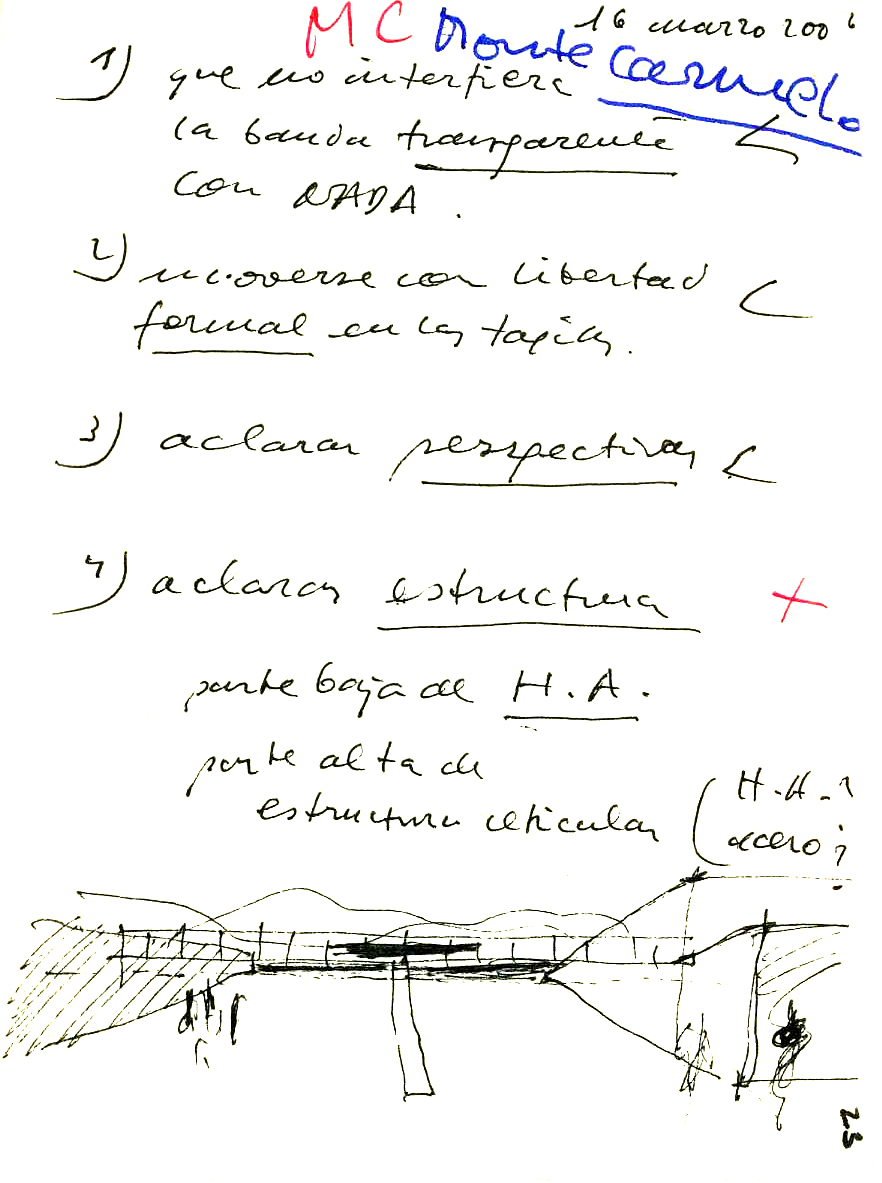 16 marzo 2006
MC Monte Carmelo
1) que no interfiera
la banda transparente
con NADA.
2) moverse con libertad
formal en las tapias.
3) aclarar perspectivas
4) aclarar estructura +
parte baja de H.A.
parte alta de
estructura reticular
H.A.?
acero?
23